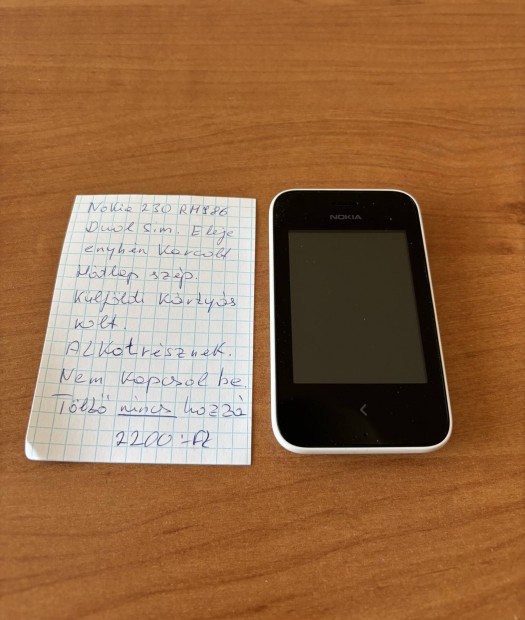 Nokia 230 RM986
Dual Sim. Eleje
enyhén Karcolt
Hátlap szép.
Külföldi Kártyás
volt.
Alkatrésznek.
Nem Kapcsol be.
Töltő nincs hozzá
2200:-Ft
NOKIA